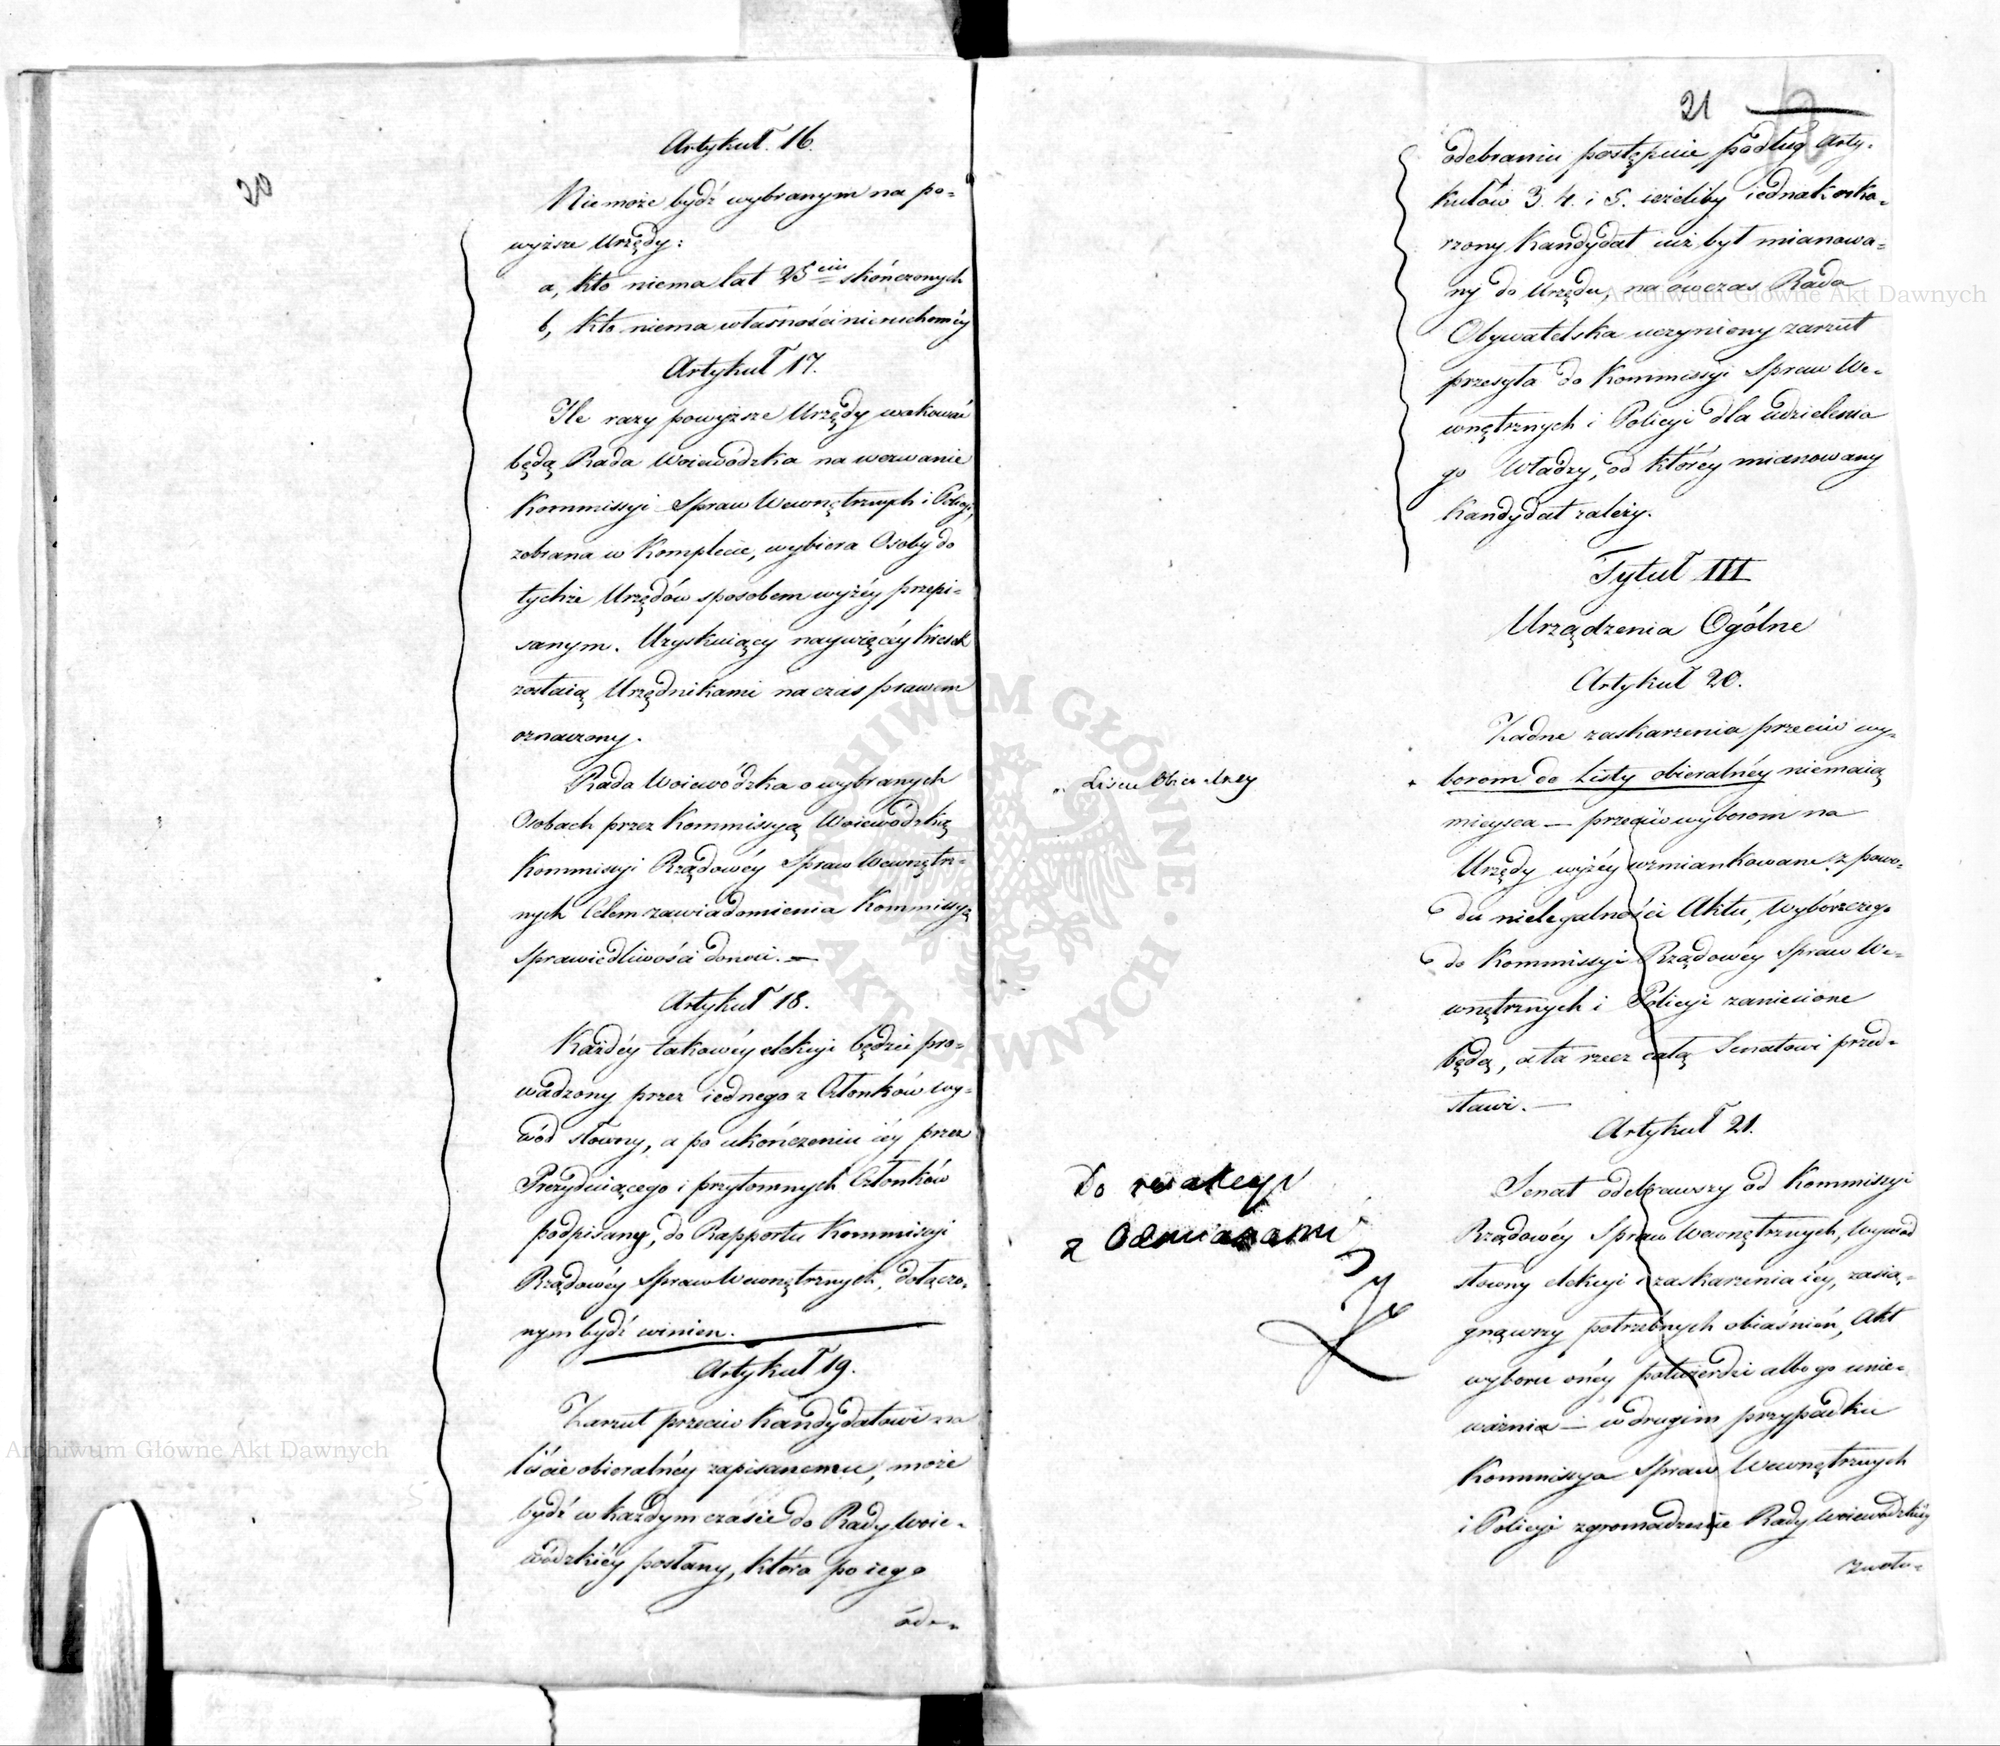 20
Artykuł. 16.
Niemoże bydź wybranym na po-
wyższe Urzędy:
a, kto niema lat 25ciu skończonych
b, kto niema własności nieruchoméy
Artykuł 17.
Ile razy powyższe Urzędy wakować
będą Rada Woiewódzka na wezwanie
Kommissyi Spraw Wewnętrznych i Policyi,
zebrana w Komplecie, wybiera Osoby do
tychże Urzędów sposobem wyżéy przepi-
sanym. Uzyskuiący naywięcéy kresek
zostaią Urzędnikami na czas prawem
oznaczony.
Rada Woiewodzka o wybranych
Osobach przez Kommissyą Woiewódzką
Kommissyi Rządowéy Spraw Wewnętrz-
nych Celem zawiadomienia Kommissyą
Sprawiedliwości donosi. —
Artykuł 18.
Każdéy takowéy elekcyi będzie pro-
wadzony przez iednego z Członków wy-
wód słowny, a po ukończeniu iéy przez
Prezyduiącego i przytomnych Członków
podpisany, do Rapportu Kommissyi
Rządowéy Spraw Wewnętrznych, dołączo-
nym bydź winien.
Artykuł 19.
Zarzut przeciw Kandydatowi na
liście obieralnéy zapisanemu, może
bydź w każdym czasie do Rady Woie-
wódzkiéy posłany, która po iego
ode-
21
odebraniu postąpcie podług Arty-
kułów 3. 4. i 5. ieżeliby iednak oska-
rzony Kandydat iuż był mianowa-
ny do Urzędu, na ówczas Rada
Obywatelska uczyniony zarzut
przesyła do Kommissyi Spraw We-
wnętrznych i Policyi dla udzielenia
go Władzy, od któréy mianowany
Kandydat zależy.
Tytuł III
Urządzenia Ogólne
Artykuł 20.
Żadne zaskarżenia przeciw wy-
borom do Listy obieralnéy niemaią
Liście Obieralney
mieysca — przeciw wyborom na
Urzędy wyżéy wzmiankowane z powo-
du nielegalności Aktu, Wyborczego
do Kommissyi Rządowéy Spraw We-
wnętrznych i Policyi zaniesione
będą, a ta rzecz całą Senatowi przed-
stawi. —
Artykuł 21.
Do redakcyi
z Odmianami
Senat odebrawszy od Kommissyi
Rządowéy Spraw Wewnętrznych, Wywód
słowny elekcyi i zaskarżenia iéy, zasią-
gnąwszy potrzebnych obiaśnień, Akt
wyboru onéy potwierdzi albo go unie-
ważnia — w drugim przypadku
Kommissya Spraw Wewnętrznych
i Policyi zgromadzenie Rady Woiewódzkiéy
zwoła-
Archiwum Główne Akt Dawnych
Archiwum Główne Akt Dawnych
ARCHIWUM GŁÓWNE AKT DAWNYCH